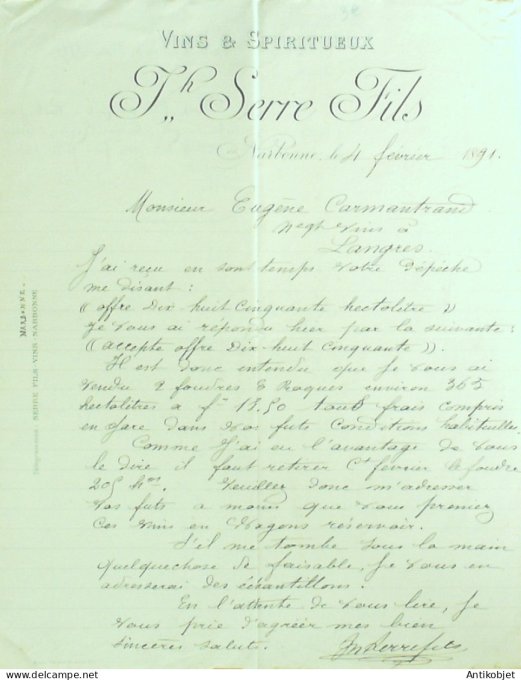 Vins & Spiritueux
Jh Serre Fils
Narbonne, le 4 février 1891.
Monsieur Eugène Carmantrand
negt Vins à
Langres.
J'ai reçu en son temps Votre Dépêche
me disant:
((offre Dix-huit Cinquante hectolitre))
Je Vous ai répondu hier par la suivante:
((accepte offre Dix-huit Cinquante)).
Il est donc entendu que Je Vous ai
Vendu 2 foudres Roques environ 365
hectolitres à f. tout frais Compris
en Gare dans Vos futs Conditions habituelles.
Comme J'ai eu l'avantage de Vous
le dire il faut retirer Ct février le foudre
205 Veuillez donc m'adresser
Vos futs a moins que Vous preniez
Ces Vins en Wagons réservoir.
S'il me tombe sous la main
quelquechose de faisable, Je Vous en
adresserai des échantillons.
En l'attente de Vous lire, Je
Vous prie d'agréer mes bien
sincères saluts.
Jh Serre fils
Télégrammes: SERRE FILS-VINS-NARBONNE
Ankibojet / antikobjet.com